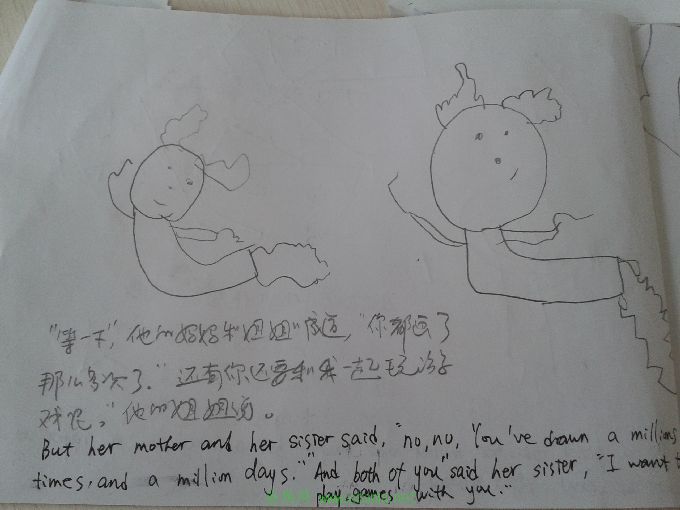 "等一下，"他的妈妈和姐姐"说道，"你都画了
那么多次了。"还有你还要和我一起玩游
戏呢。"他的姐姐说。
But her mother and her sister said, "no, no, You've drawn a millions
times, and a million days." "And both of you" said her sister, "I want t
play games with you."